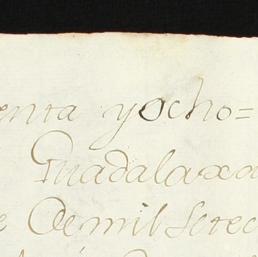 enta yocho=
Guadalaxa
e De mil Setec